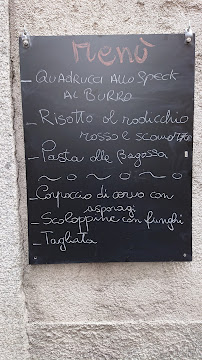 Menù
- QUADRUCCI ALLO SPECK
AL BURRO
- Risotto al radicchio
rosso e scamorza
- Pasta alle Bagossa
~ o ~ o ~ o ~
- Carpaccio di cervo con
asparagi
- Scaloppine con funghi
- Tagliata